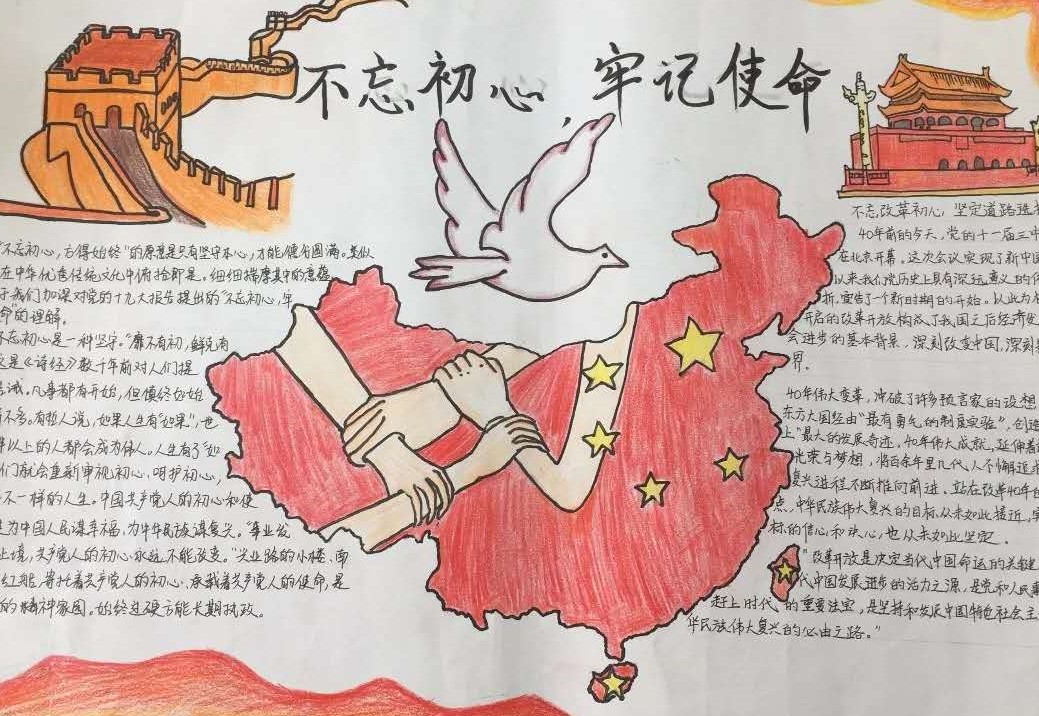 不忘初心，牢记使命
"不忘初心，方得始终"的原意是只有坚守本心，才能德行圆满。类似
在中华优秀传统文化中俯拾即是。细细揣摩其中的意蕴
于我们加深对党的十九大报告提出的"不忘初心，牢
命"的理解。
不忘初心是一种坚守。"靡不有初，鲜克有
这是《诗经》数千年前对人们提
告诫。凡事都有开始，但慎终如始
不多。有哲人说，如果人生有"如果"，也
以上的人都会成为伟人。人生有了"如
们就会重新审视初心、呵护初心，
不一样的人生。中国共产党人的初心和使
为中国人民谋幸福，为中华民族谋复兴。"事业发
止境，共产党人的初心永远不能改变。"兴业路的小楼、南
红船，寄托着共产党人的初心、承载着共产党人的使命，是
的精神家园。始终过硬方能长期执政。
不忘改革初心，坚定道路选择
40年前的今天，党的十一届三中
在北京开幕。这次会议实现了新中国
以来我们党历史上具有深远意义的伟
折，宣告了一个新时期的开始。从此为
开启的改革开放构成了我国之后经济发
会进步的基本背景，深刻改变中国，深刻
界。
40年伟大变革，冲破了许多预言家的设想，
东方大国经由"最有勇气的制度实验"，创造
上"最大的发展奇迹。40年伟大成就，延伸着
光荣与梦想，将百余年里几代人不懈追求
复兴进程不断推向前进。站在改革40年的
点，中华民族伟大复兴的目标从未如此接近，实
标的信心和决心，也从未如此坚定。
"改革开放是决定当代中国命运的关键
代中国发展进步的活力之源，是党和人民事
赶上时代的重要法宝，是坚持和发展中国特色社会主
华民族伟大复兴的必由之路。"